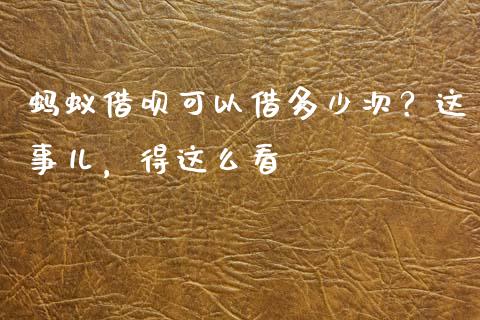 蚂蚁借呗可以借多少次？这
事儿，得这么看